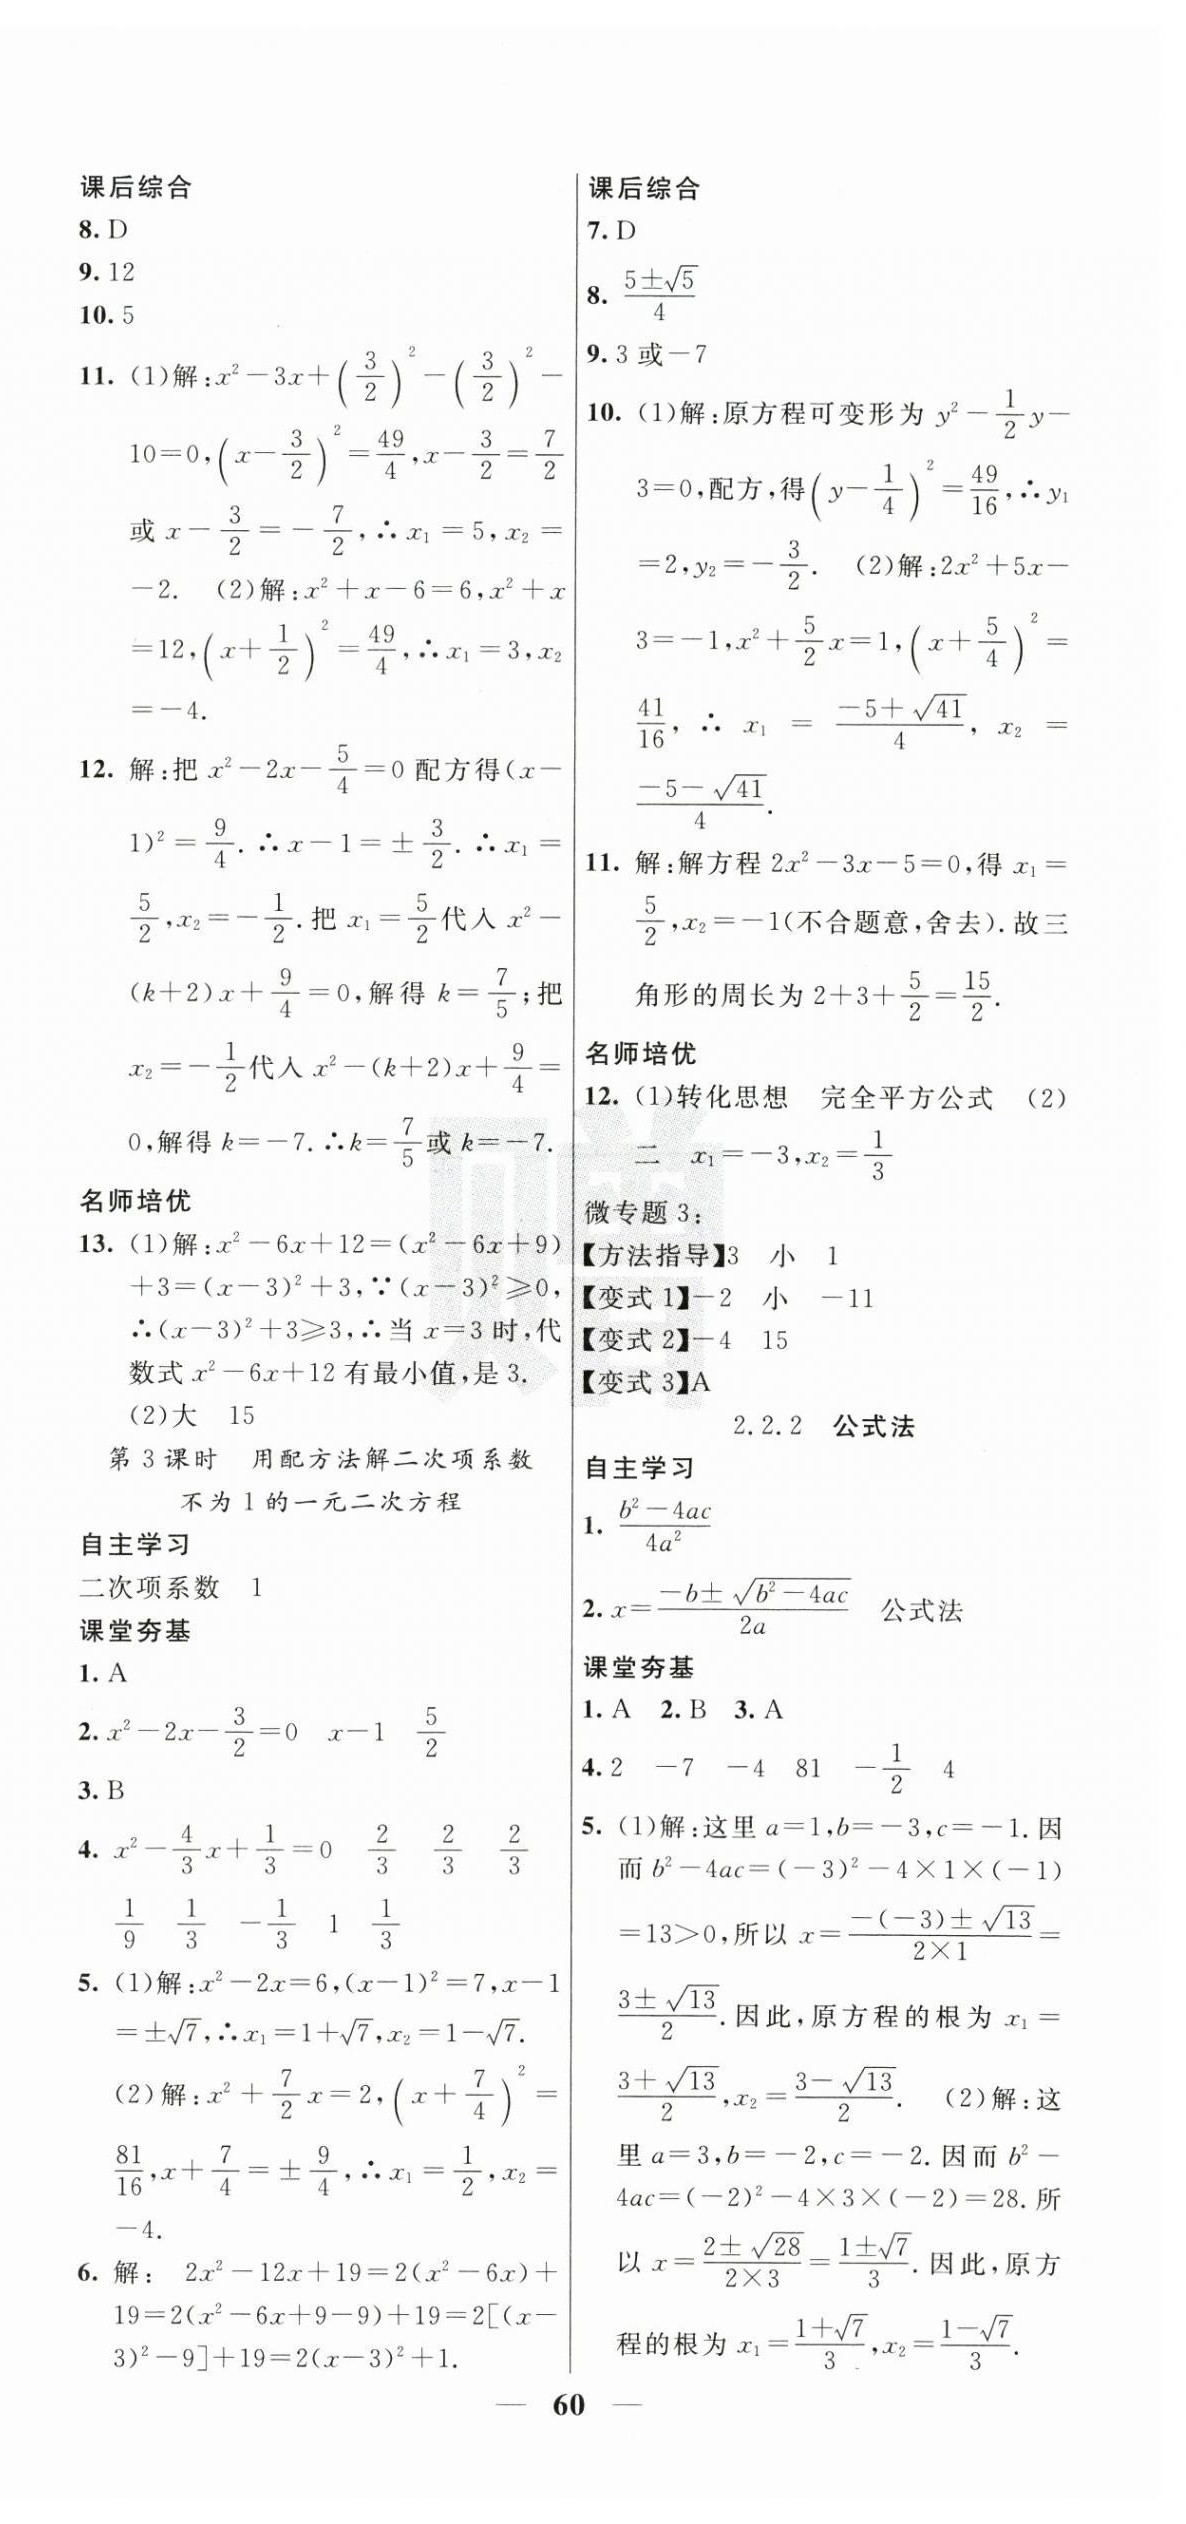 课后综合
8. D
9. 12
10. 5
11. (1)解:x²－3x＋(3/2)²－(3/2)²－
10＝0,(x－3/2)²＝49/4,x－3/2＝7/2
或 x－3/2＝－7/2,∴x₁＝5,x₂＝
－2. (2)解:x²＋x－6＝6,x²＋x
＝12,(x＋1/2)²＝49/4,∴x₁＝3,x₂
＝－4.
12. 解:把 x²－2x－5/4＝0 配方得(x－
1)²＝9/4.∴x－1＝±3/2.∴x₁＝
5/2,x₂＝－1/2.把 x₁＝5/2代入 x²－
(k＋2)x＋9/4＝0,解得 k＝7/5;把
x₂＝－1/2代入 x²－(k＋2)x＋9/4＝
0,解得 k＝－7.∴k＝7/5或 k＝－7.
名师培优
13. (1)解:x²－6x＋12＝(x²－6x＋9)
＋3＝(x－3)²＋3,∵(x－3)²≥0,
∴(x－3)²＋3≥3,∴当 x＝3 时,代
数式 x²－6x＋12 有最小值,是 3.
(2)大 15
第 3 课时 用配方法解二次项系数
不为 1 的一元二次方程
自主学习
二次项系数 1
课堂夯基
1. A
2. x²－2x－3/2＝0 x－1 5/2
3. B
4. x²－4/3x＋1/3＝0 2/3 2/3 2/3
1/9 1/3 －1/3 1 1/3
5. (1)解:x²－2x＝6,(x－1)²＝7,x－1
＝±√7,∴x₁＝1＋√7,x₂＝1－√7.
(2)解:x²＋7/2x＝2,(x＋7/4)²＝
81/16,x＋7/4＝±9/4,∴x₁＝1/2,x₂＝
－4.
6. 解: 2x²－12x＋19＝2(x²－6x)＋
19＝2(x²－6x＋9－9)＋19＝2[(x－
3)²－9]＋19＝2(x－3)²＋1.
课后综合
7. D
8. (5±√5)/4
9. 3 或－7
10. (1)解:原方程可变形为 y²－1/2y－
3＝0,配方,得(y－1/4)²＝49/16,∴y₁
＝2,y₂＝－3/2. (2)解:2x²＋5x－
3＝－1,x²＋5/2x＝1,(x＋5/4)²＝
41/16,∴x₁＝(－5＋√41)/4,x₂＝
(－5－√41)/4.
11. 解:解方程 2x²－3x－5＝0,得 x₁＝
5/2,x₂＝－1(不合题意,舍去).故三
角形的周长为 2＋3＋5/2＝15/2.
名师培优
12. (1)转化思想 完全平方公式 (2)
二 x₁＝－3,x₂＝1/3
微专题 3:
【方法指导】3 小 1
【变式 1】－2 小 －11
【变式 2】－4 15
【变式 3】A
2.2.2 公式法
自主学习
1. (b²－4ac)/4a²
2. x＝(－b±√(b²－4ac))/2a 公式法
课堂夯基
1. A 2. B 3. A
4. 2 －7 －4 81 －1/2 4
5. (1)解:这里 a＝1,b＝－3,c＝－1.因
而 b²－4ac＝(－3)²－4×1×(－1)
＝13>0,所以 x＝(－(－3)±√13)/(2×1)＝
(3±√13)/2.因此,原方程的根为 x₁＝
(3＋√13)/2,x₂＝(3－√13)/2. (2)解:这
里 a＝3,b＝－2,c＝－2.因而 b²－
4ac＝(－2)²－4×3×(－2)＝28.所
以 x＝(2±√28)/(2×3)＝(1±√7)/3.因此,原方
程的根为 x₁＝(1＋√7)/3,x₂＝(1－√7)/3.
— 60 —